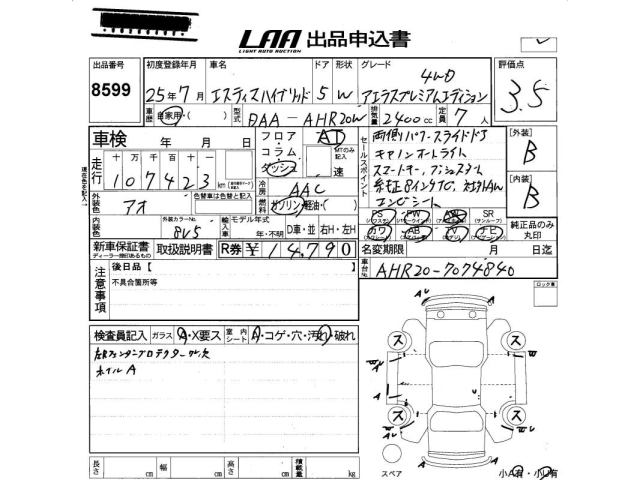 LAA 出品申込書
LIGHT AUTO AUCTION
出品番号 8599
初度登録年月 車名 ドア 形状 グレード 評価点
25年7月 エスティマハイブリッド 5 W 4WD アエラスプレミアムエディション 3.5
車歴 自家用・( ) 型式 DAA-AHR20W 排気量 2400cc 定員 7人
車検 年 月 日
フロア・コラム・ダッシュ AT MTのみ記入 速
走行 十万 万 千 百 十 107423 km
セールスポイント
両側パワースライドドア
スマートキー
エンジンスタート
[外装] B
[内装] B
外装色 アオ 色替車は色替と記入
冷房 AAC
燃料 ガソリン・軽油・( )
内装色 外装カラーNo. 8V5 輸入車 モデル年式 年・不明 D車・並 右H・左H
PS PW AW SR (サンルーフ)
カワ AB TV ナビ
純正品のみ丸印
新車保証書 取扱説明書 R券 ¥14,790
ディーラー捺印あるもの
名変期限 月 日迄
車台No. AHR20-7074840
注意事項
後日品【
不具合箇所等
ロック車
検査員記入 ガラス A・X要ス 室内シート A・コゲ・穴・汚れ・破れ
ホイルA
ス ス ス ス
長さ cm 幅 cm 高さ cm 積載量 kg
スペア
小A有・小U有